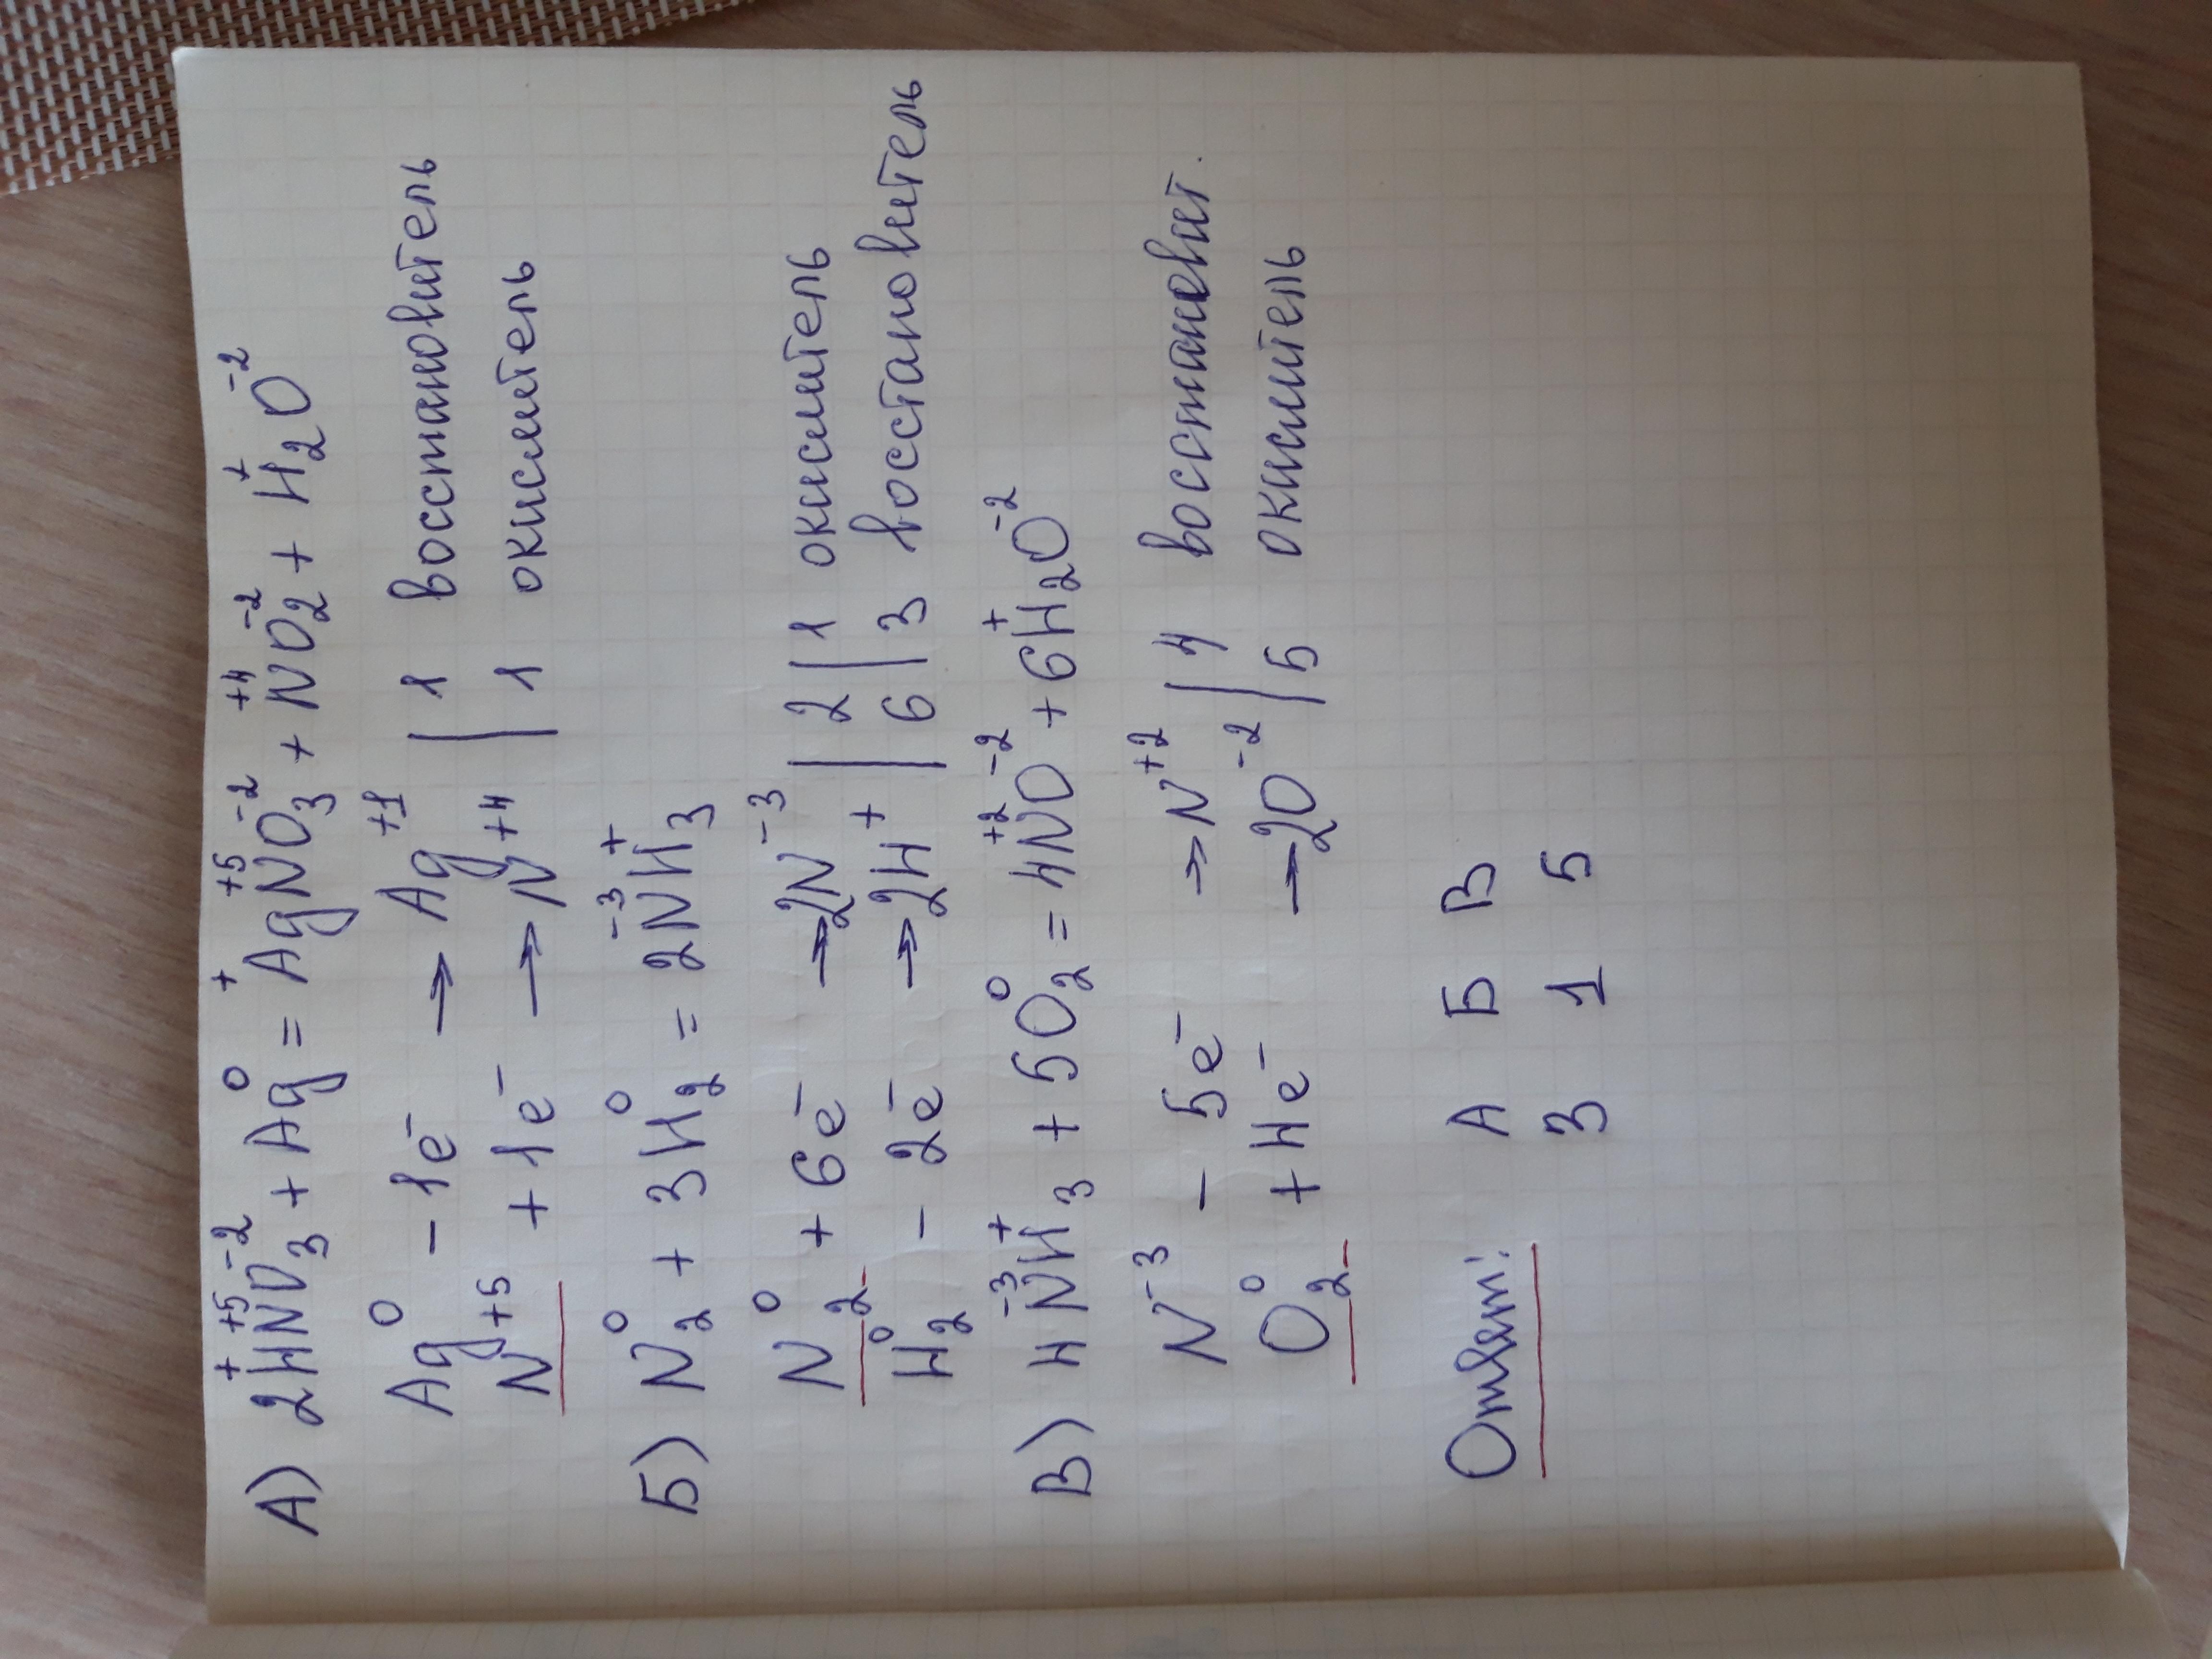 А) 2H⁺N⁺⁵O₃⁻² + Ag⁰ = Ag⁺N⁺⁵O₃⁻² + N⁺⁴O₂⁻² + H₂⁺O⁻²
Ag⁰ - 1e⁻ → Ag⁺¹ | 1 восстановитель
N⁺⁵ + 1e⁻ → N⁺⁴ | 1 окислитель
Б) N₂⁰ + 3H₂⁰ = 2N⁻³H₃⁺
N₂⁰ + 6e⁻ → 2N⁻³ | 2 | 1 окислитель
H₂⁰ - 2e⁻ → 2H⁺ | 6 | 3 восстановитель
В) 4N⁻³H₃⁺ + 5O₂⁰ = 4N⁺²O⁻² + 6H₂⁺O⁻²
N⁻³ - 5e⁻ → N⁺² | 4 восстановит.
O₂⁰ + 4e⁻ → 2O⁻² | 5 окислитель
Ответ: А Б В
3 1 5